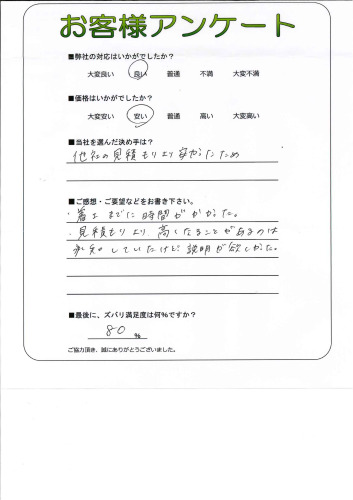 お客様アンケート
■弊社の対応はいかがでしたか？
大変良い 良い 普通 不満 大変不満
■価格はいかがでしたか？
大変安い 安い 普通 高い 大変高い
■当社を選んだ決め手は？
他社の見積もりより安かったため
■ご感想・ご要望などをお書き下さい。
・着工までに時間がかかった。
・見積もりより、高くなることがあるのは
承知していたけど説明が欲しかった。
■最後に、ズバリ満足度は何％ですか？
80 ％
ご協力頂き、誠にありがとうございました。